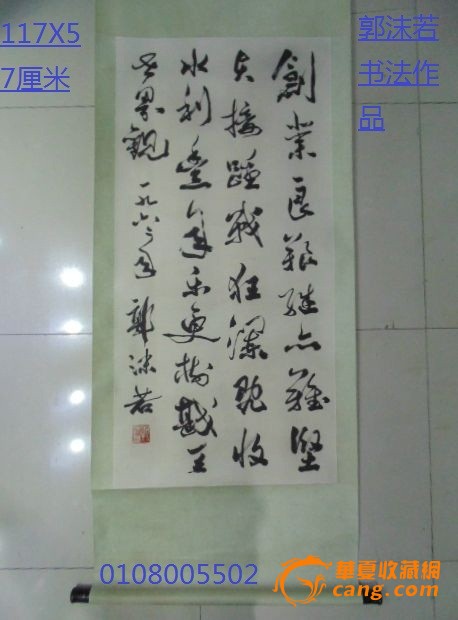 117X5
7厘米
郭沫若
书法作
品
創業良艱继亦難堅
貞接踵戰狂瀾既收
水利豐年乐更樹
世界觀 一九六二年 郭沫若
0108005502
華夏收藏網
cang.com